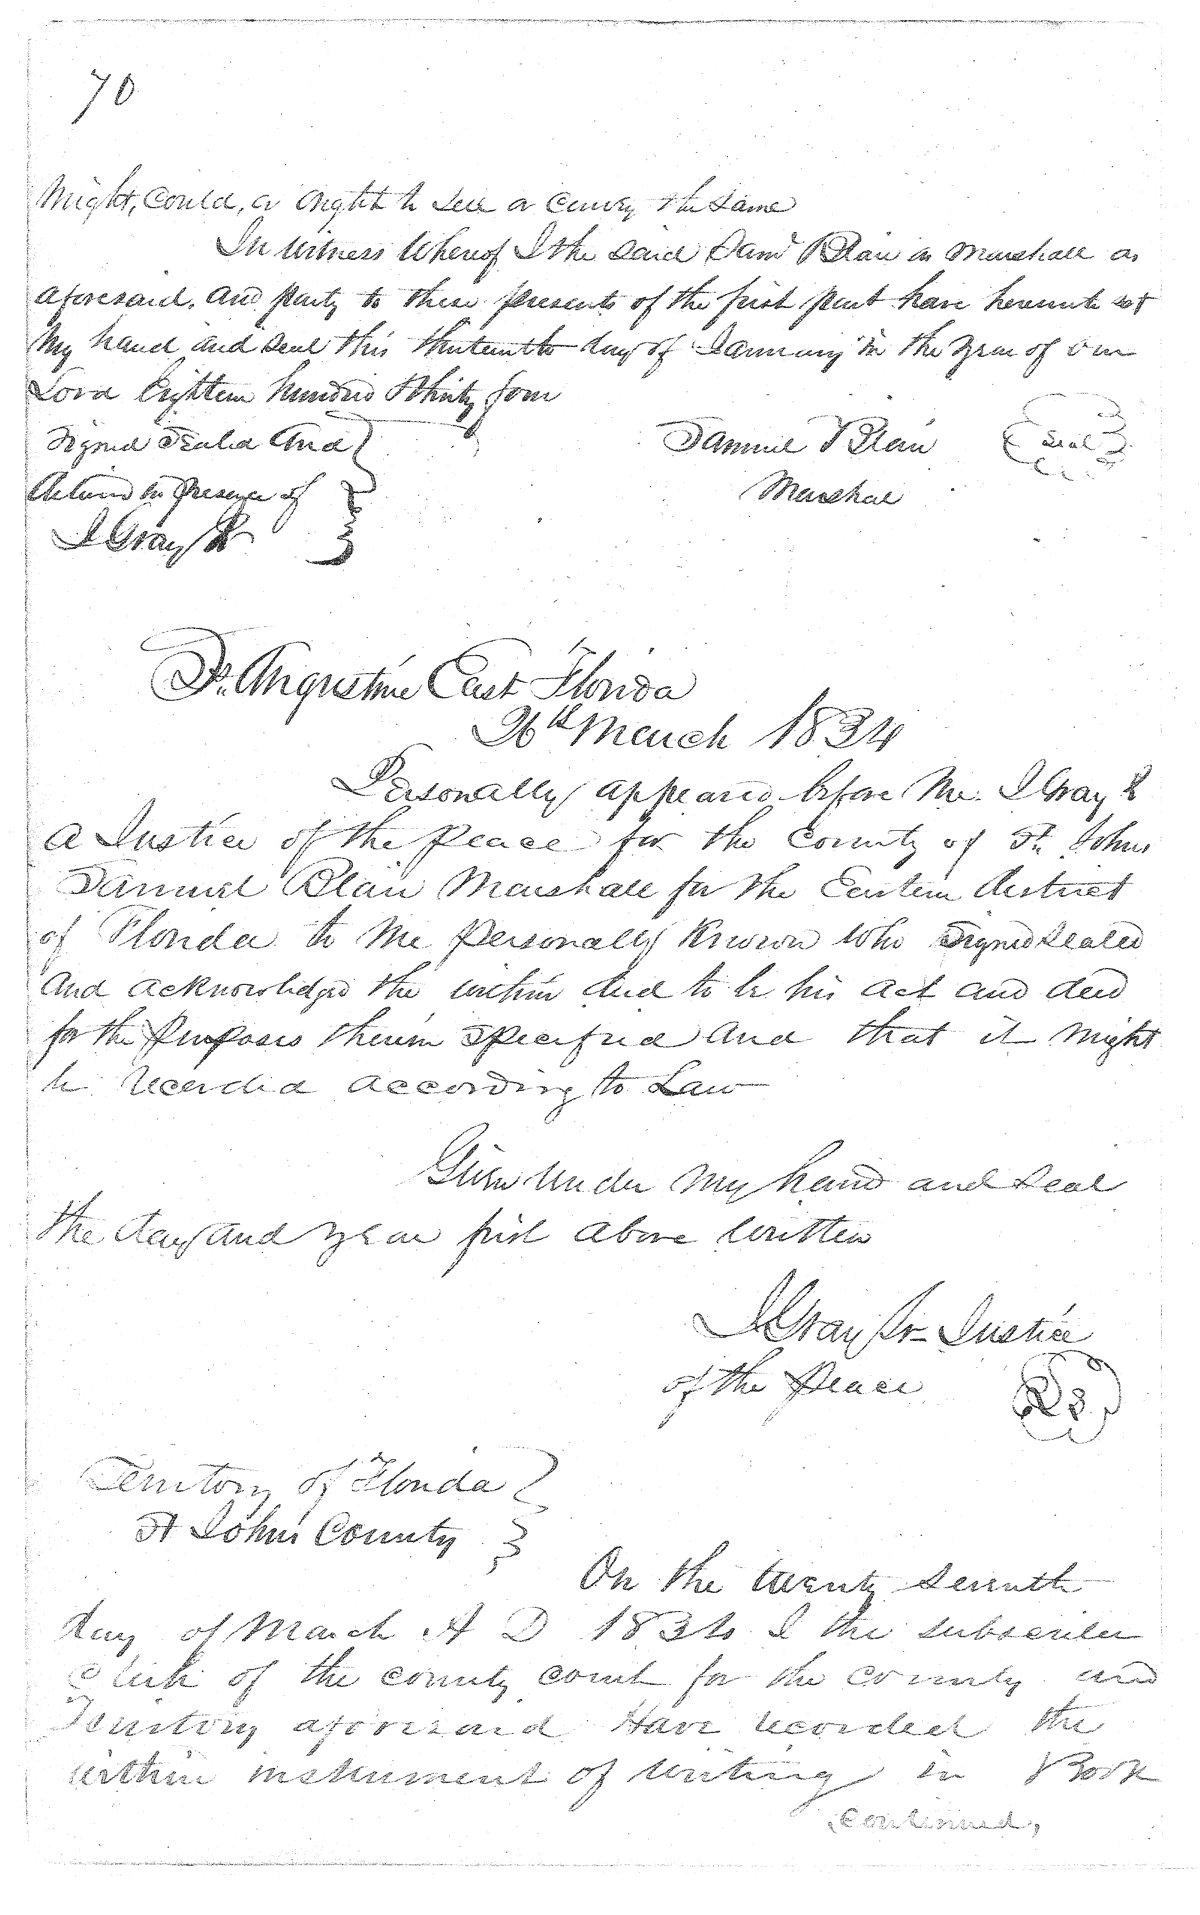 70
Might, Could, or ought to Sell or Convey the Same
In witness Whereof I the said Saml Blair as Marshall as
aforesaid. And Party to these presents of the first part have hereunto set
My hand and seal this thirteenth day of January in the year of our
Lord Eighteen hundred & thirty four
Signed Sealed And
Samuel Blair
Seal
in presence of
Marshal
I Gray Jr
St. Augustine East Florida
26th March 1834
Personally appeared before Me I Gray Jr
a Justice of the Peace for the County of St. Johns
Samuel Blair Marshall for the Eastern district
of Florida to Me Personally Known who Signed Sealed
And acknowledged the within deed to be his act and deed
for the Purposes therein Specified And that it Might
be recorded according to Law
Given under my hand and seal
the day and year first above written
I Gray Jr Justice
of the Peace
LS
Territory of Florida
St Johns County
On the twenty seventh
day of March A D 1834 I the subscriber
Clerk of the county court for the county and
Territory aforesaid Have recorded the
within instrument of writing in Book
Continued,